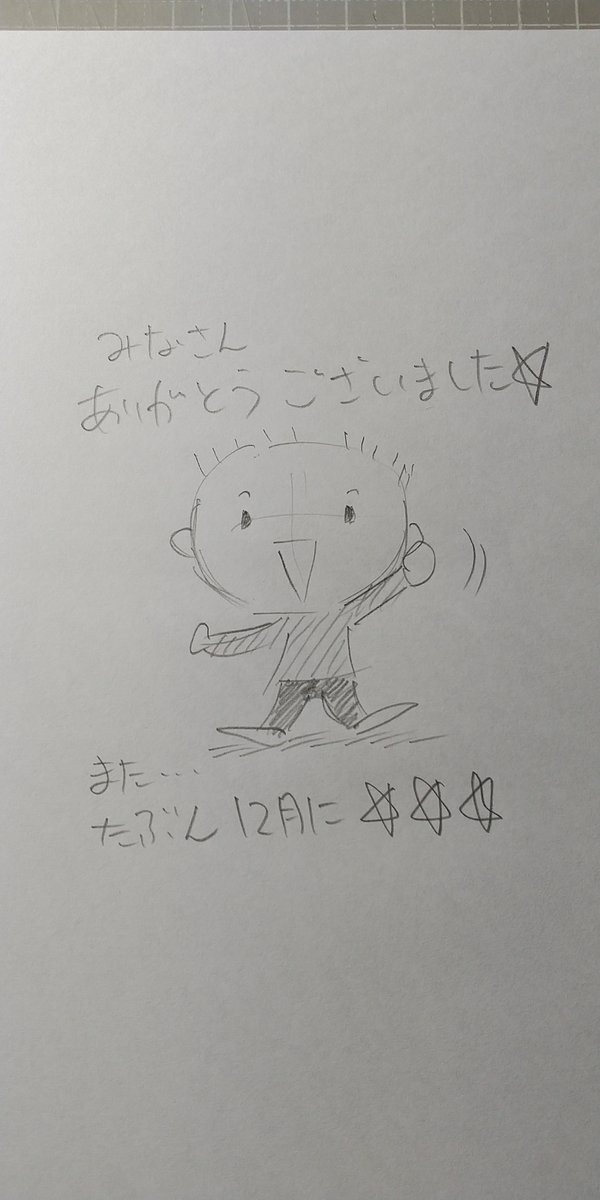 みなさん
ありがとうございました☆
また...
たぶん12月に☆☆☆